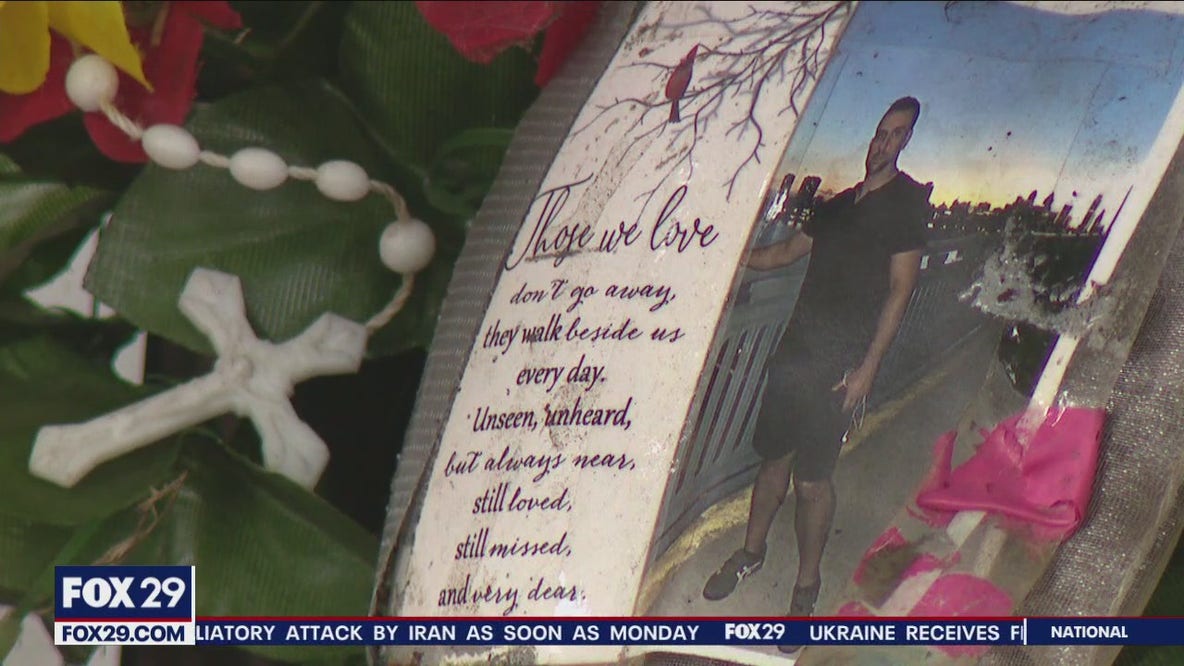 Those we love
don't go away,
they walk beside us
every day.
Unseen, unheard,
but always near,
still loved,
still missed,
and very dear.
FOX 29
FOX29.COM
LIATORY ATTACK BY IRAN AS SOON AS MONDAY FOX29 UKRAINE RECEIVES NATIONAL